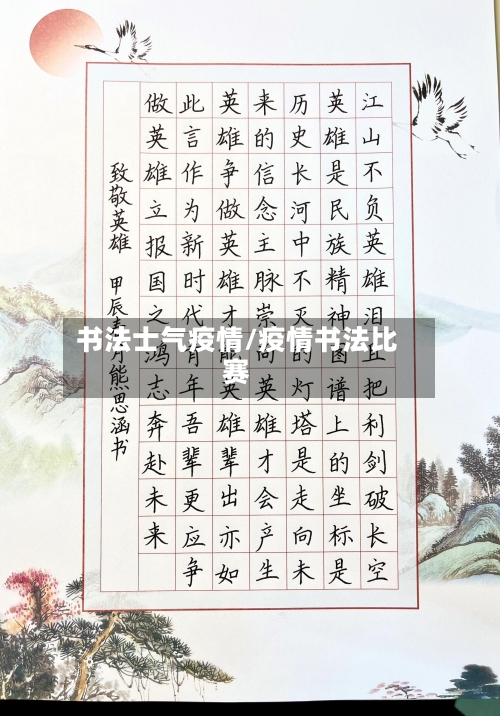 江山不负英雄泪且把利剑破长空
英雄是民族精神图谱上的坐标是
历史长河中不灭的灯塔是走向未
来的信念主脉崇尚英雄才会产生
英雄争做英雄才能英雄辈出亦如
此言作为新时代青年吾辈更应争
做英雄立报国之鸿志奔赴未来
致敬英雄 甲辰春月熊思涵书
书法士气疫情/疫情书法比
赛